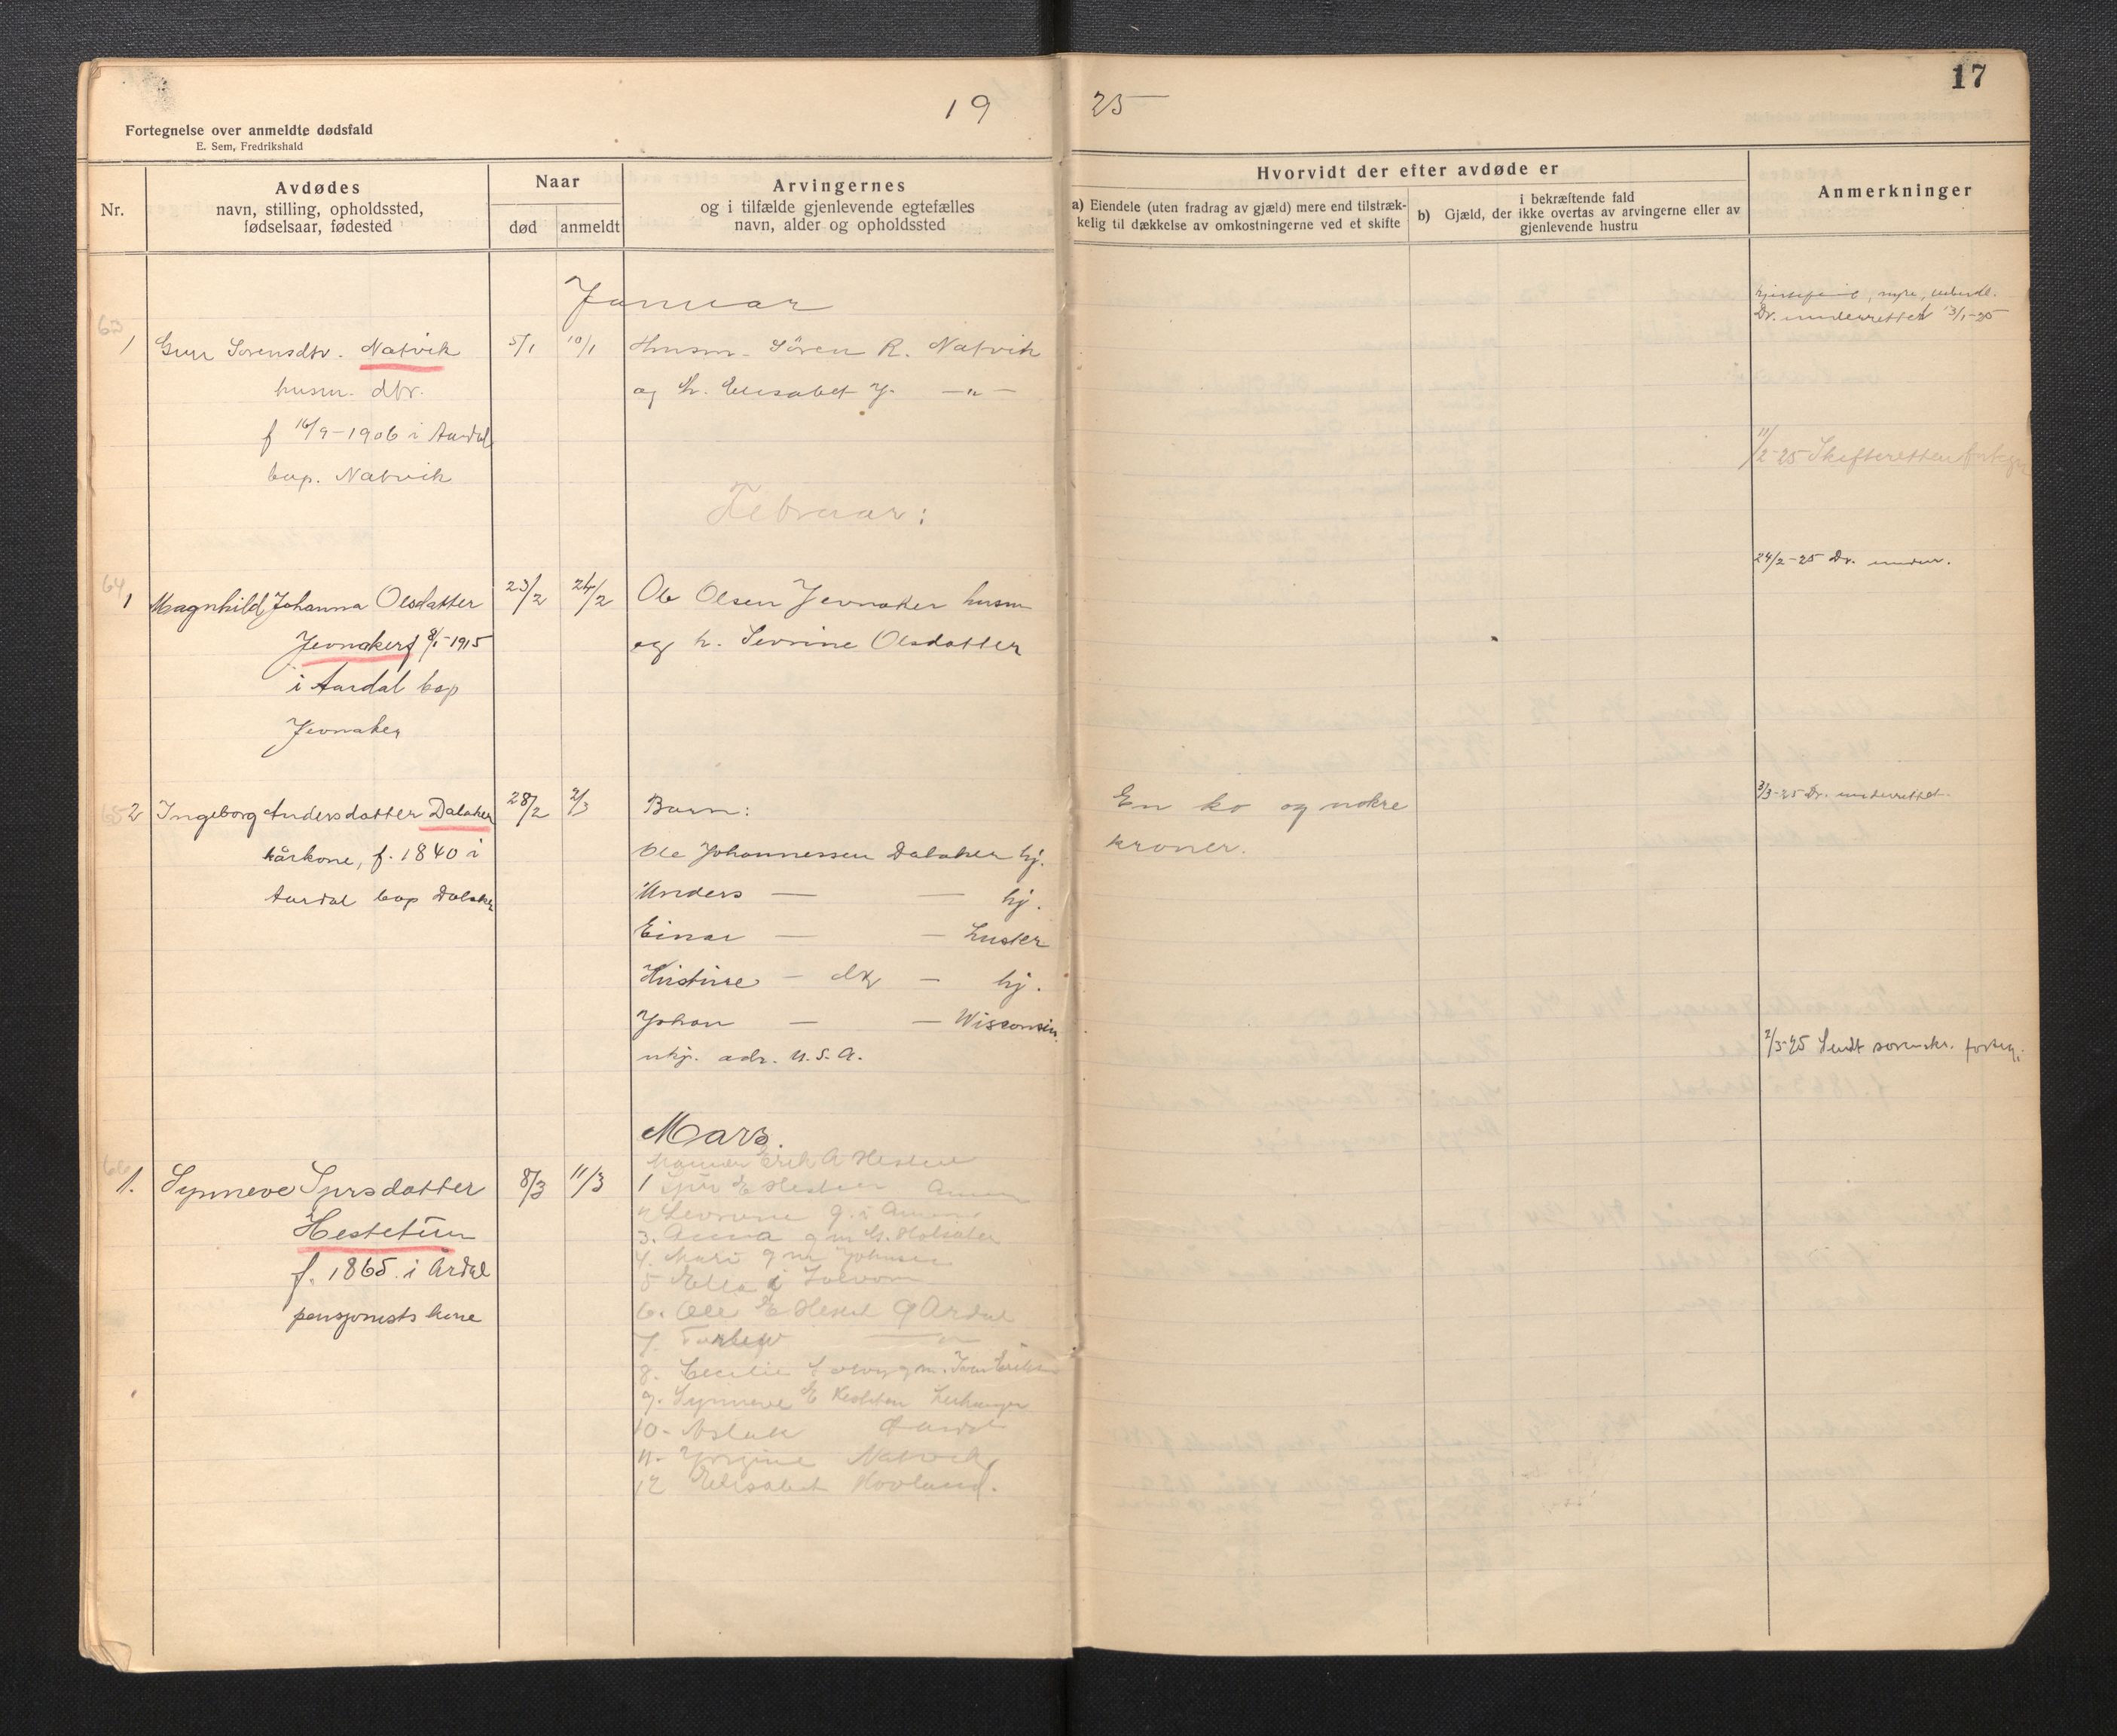 17
19 25
Fortegnelse over anmeldte dødsfald
E. Sem, Fredrikshald
Nr.
Avdødes
navn, stilling, opholdssted,
fødselsaar, fødested
Naar
død
anmeldt
Arvingernes
og i tilfælde gjenlevende egtefælles
navn, alder og opholdssted
Hvorvidt der efter avdøde er
a) Eiendele (uten fradrag av gjæld) mere end tilstræk-
kelig til dækkelse av omkostningerne ved et skifte
i bekræftende fald
b) Gjæld, der ikke overtas av arvingerne eller av
gjenlevende hustru
Anmerkninger
Januar
63
1 Guri Sørensdtr. Natvik 5/1 10/1 Husm. Sören R. Natvik
husm. dtr. og h. Elisabet J. —"—
f 16/9-1906 i Aardal
bop. Natvik
Dr. underrettet 13/1-25
11/2-25 Skifteretten
Februar:
64
1 Magnhild Johanna Olsdatter 23/2 24/2 Ole Olsen Jevnaker husm
Jevnaker f 8/1-1915 og h. Sevrine Olsdatter
i Aardal bop
Jevnaker
24/2-25 Dr. underr.
65
2 Ingeborg Andersdatter Dalaker 28/2 2/3 Barn:
kårkone, f. 1840 i Ole Johannessen Dalaker hj.
Aardal bop Dalaker Anders — — hj.
Einar — — Luster
Kristine — dtr — hj.
Johan — — Wisconsin
nkj. adr. U.S.A.
En ko og nokre
kroner.
3/3-25 Dr. underrettet.
2/3-25 Sendt sorenskr. forteg.
Mars.
66
1. Synneve Sjursdatter 8/3 11/3
Hestetun
f. 1865 i Årdal
pensjonists kone
Erik A Hestet
1 Sjur E Hestetun
2 Sevrine g. i
3. Anna g m
4. Mari g m Johnsen
5 Ella i
6. Ole E Hestet Årdal
7. Torleiv —"—
8. Cecilie g m. Iver Eriksen
9. Synneve E Leikanger
10. Aslak Årdal
11. Jørgine Natvik
12 Elisabet Hovland.